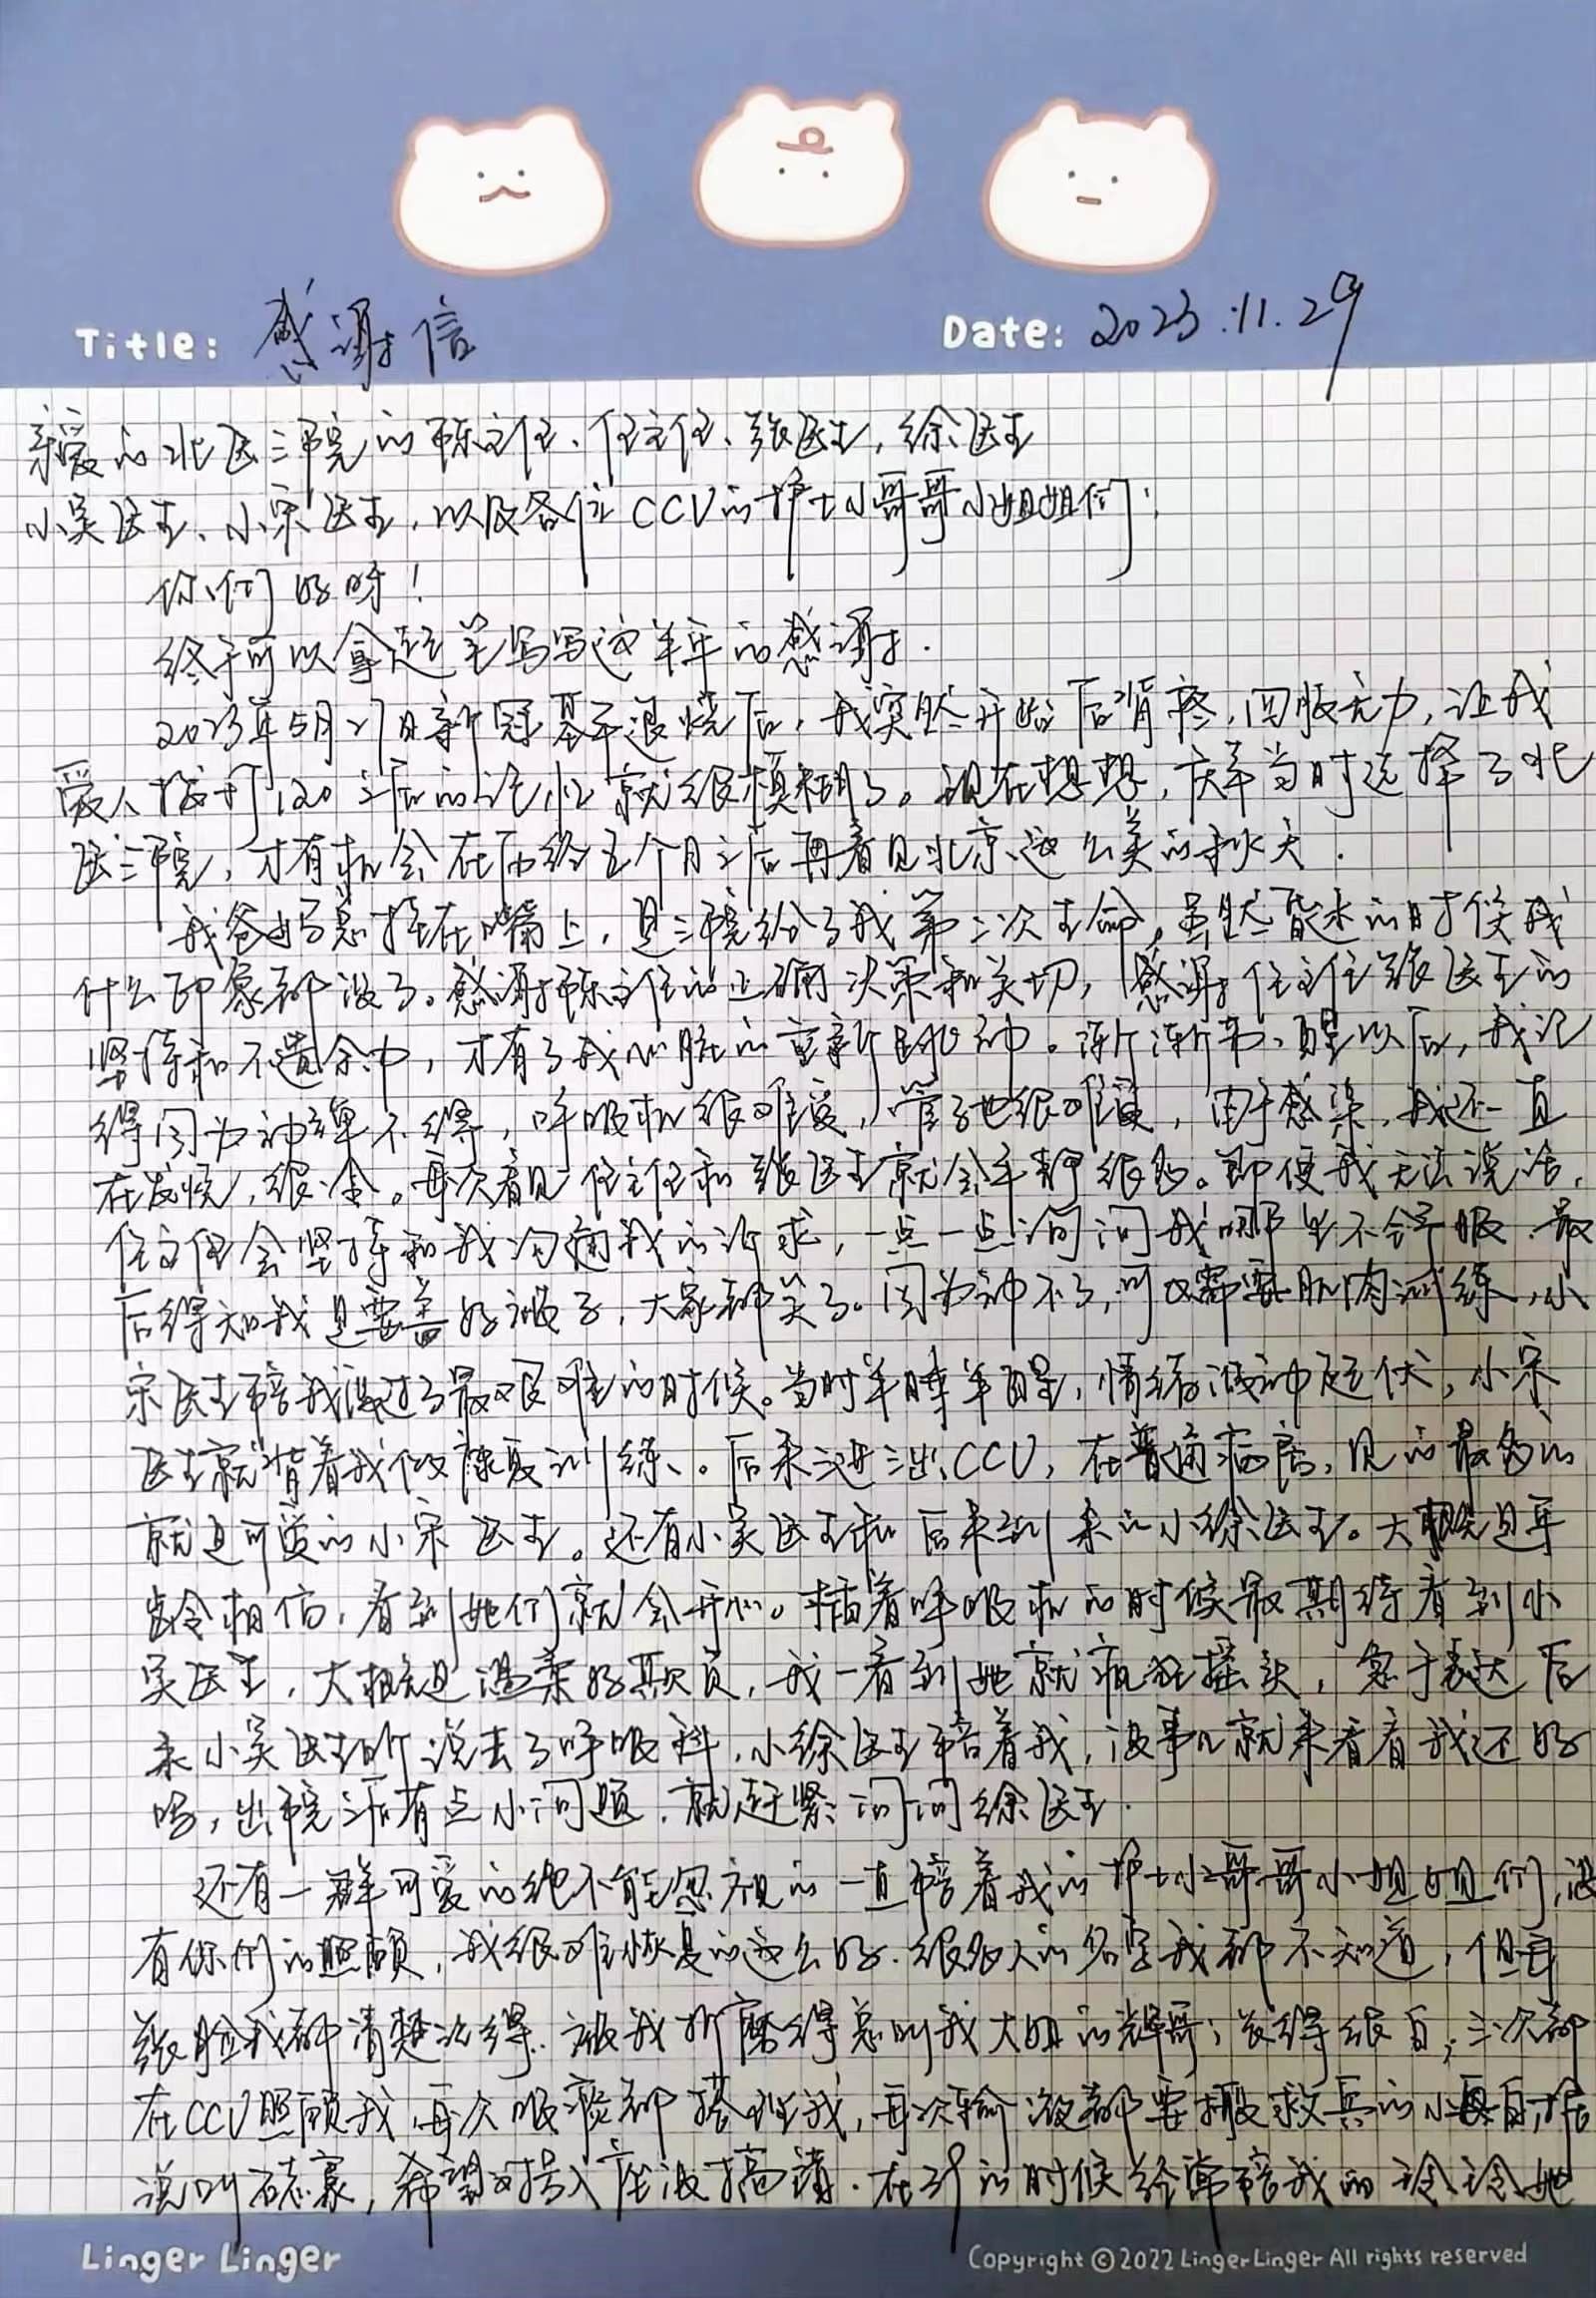 Title: 感谢信
Date: 2023.11.29
亲爱的北医三院的陈主任、任主任、张医生,徐医生
小吴医生、小宋医生,以及各位CCU的护士小哥哥小姐姐们:
你们好呀!
终于可以拿起笔写写这半年的感谢.
2023年5月27日新冠基本退烧后,我突然开始后背疼,四肢无力,让我
爱人拨打120之后的记忆就很模糊了。现在想想,庆幸当时选择了北
医三院,才有机会在历经五个月之后再看见北京这么美的秋天.
我爸妈总挂在嘴上,是三院给了我第二次生命,虽然昏迷的时候我
什么印象都没了。感谢陈主任的正确决策和关切,感谢任主任张医生的
坚持和不遗余力,才有了我心脏的重新跳动。渐渐苏醒以后,我记
得因为动弹不得,呼吸机很难受,管子也很难受,由于感染,我还一直
在发烧,很冷。每次看见任主任和张医生就会平静很多。即便我无法说话,
任主任会坚持和我沟通我的诉求,一点一点询问我哪里不舒服.最
后得知我是要盖好被子,大家都笑了。因为动不了,可又需要肌肉训练,小
宋医生陪我度过了最艰难的时候。当时半睡半醒,情绪波动起伏,小宋
医生就背着我做康复训练。后来三进三出CCU,在普通病房,见的最多的
就是可爱的小宋医生。还有小吴医生和后来到来的小徐医生。大概是年
龄相仿,看到她们就会开心。插着呼吸机的时候最期待看到小
吴医生,大概是温柔好欺负,我一看到她就疯狂摇头,急于表达 后
来小吴医生听说去了呼吸科,小徐医生陪着我,没事儿就来看看我还好
吗,出院之后有点小问题,就赶紧问问徐医生.
还有一群可爱的绝不能忽视的一直陪着我的护士小哥哥小姐姐们,没
有你们的照顾,我很难恢复的这么好.很多人的名字我都不知道,但每
张脸我都清楚记得.被我折磨得总叫我大姐的辉哥;长得很白,三次都
在CCU照顾我,每次吸痰都搭理我,每次输液都要搬救兵的小 据
说叫志豪,希望对号入座没搞错.在 的时候经常陪我的玲玲她
Linger Linger
Copyright © 2022 Linger Linger All rights reserved